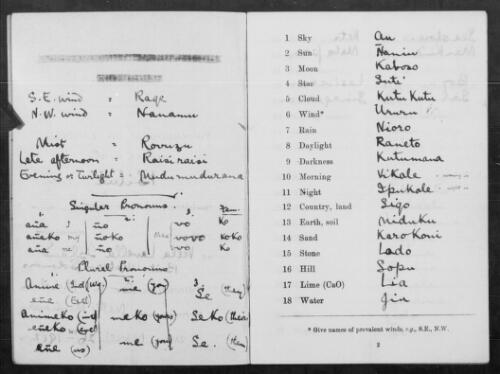 S.E. wind = Rage
N.W. wind = Nanamu
Mist = Rovuzu
Late afternoon = Raisiraisi
Evening or Twilight = Mudumudurana
Singular Pronouns.
1. 2. 3. Fem.
aña I ño vo Ko
añeko my ñoko vovo KoKo
aña me ño vo Ko
Plural Pronouns
Anime (Incl) (we) me (you) Se (they)
eñe (Excl)
AnimeKo (incl) meKo (yours) SeKo (their)
eñeKo (excl)
eñe (us) me (you) Se. (them)
1 Sky au
2 Sun Naniu
3 Moon Kaboso
4 Star Suti
5 Cloud KutuKutu
6 Wind* Ururu
7 Rain Nioro
8 Daylight Raneto
9 Darkness Kutumana
10 Morning ViKale
11 Night IpuKale
12 Country, land Sigo
13 Earth, soil MiduKu
14 Sand KaroKoni
15 Stone Lado
16 Hill Sopu
17 Lime (CaO) Lia
18 Water Jiu
* Give names of prevalent winds, e.g., S.E., N.W.
2